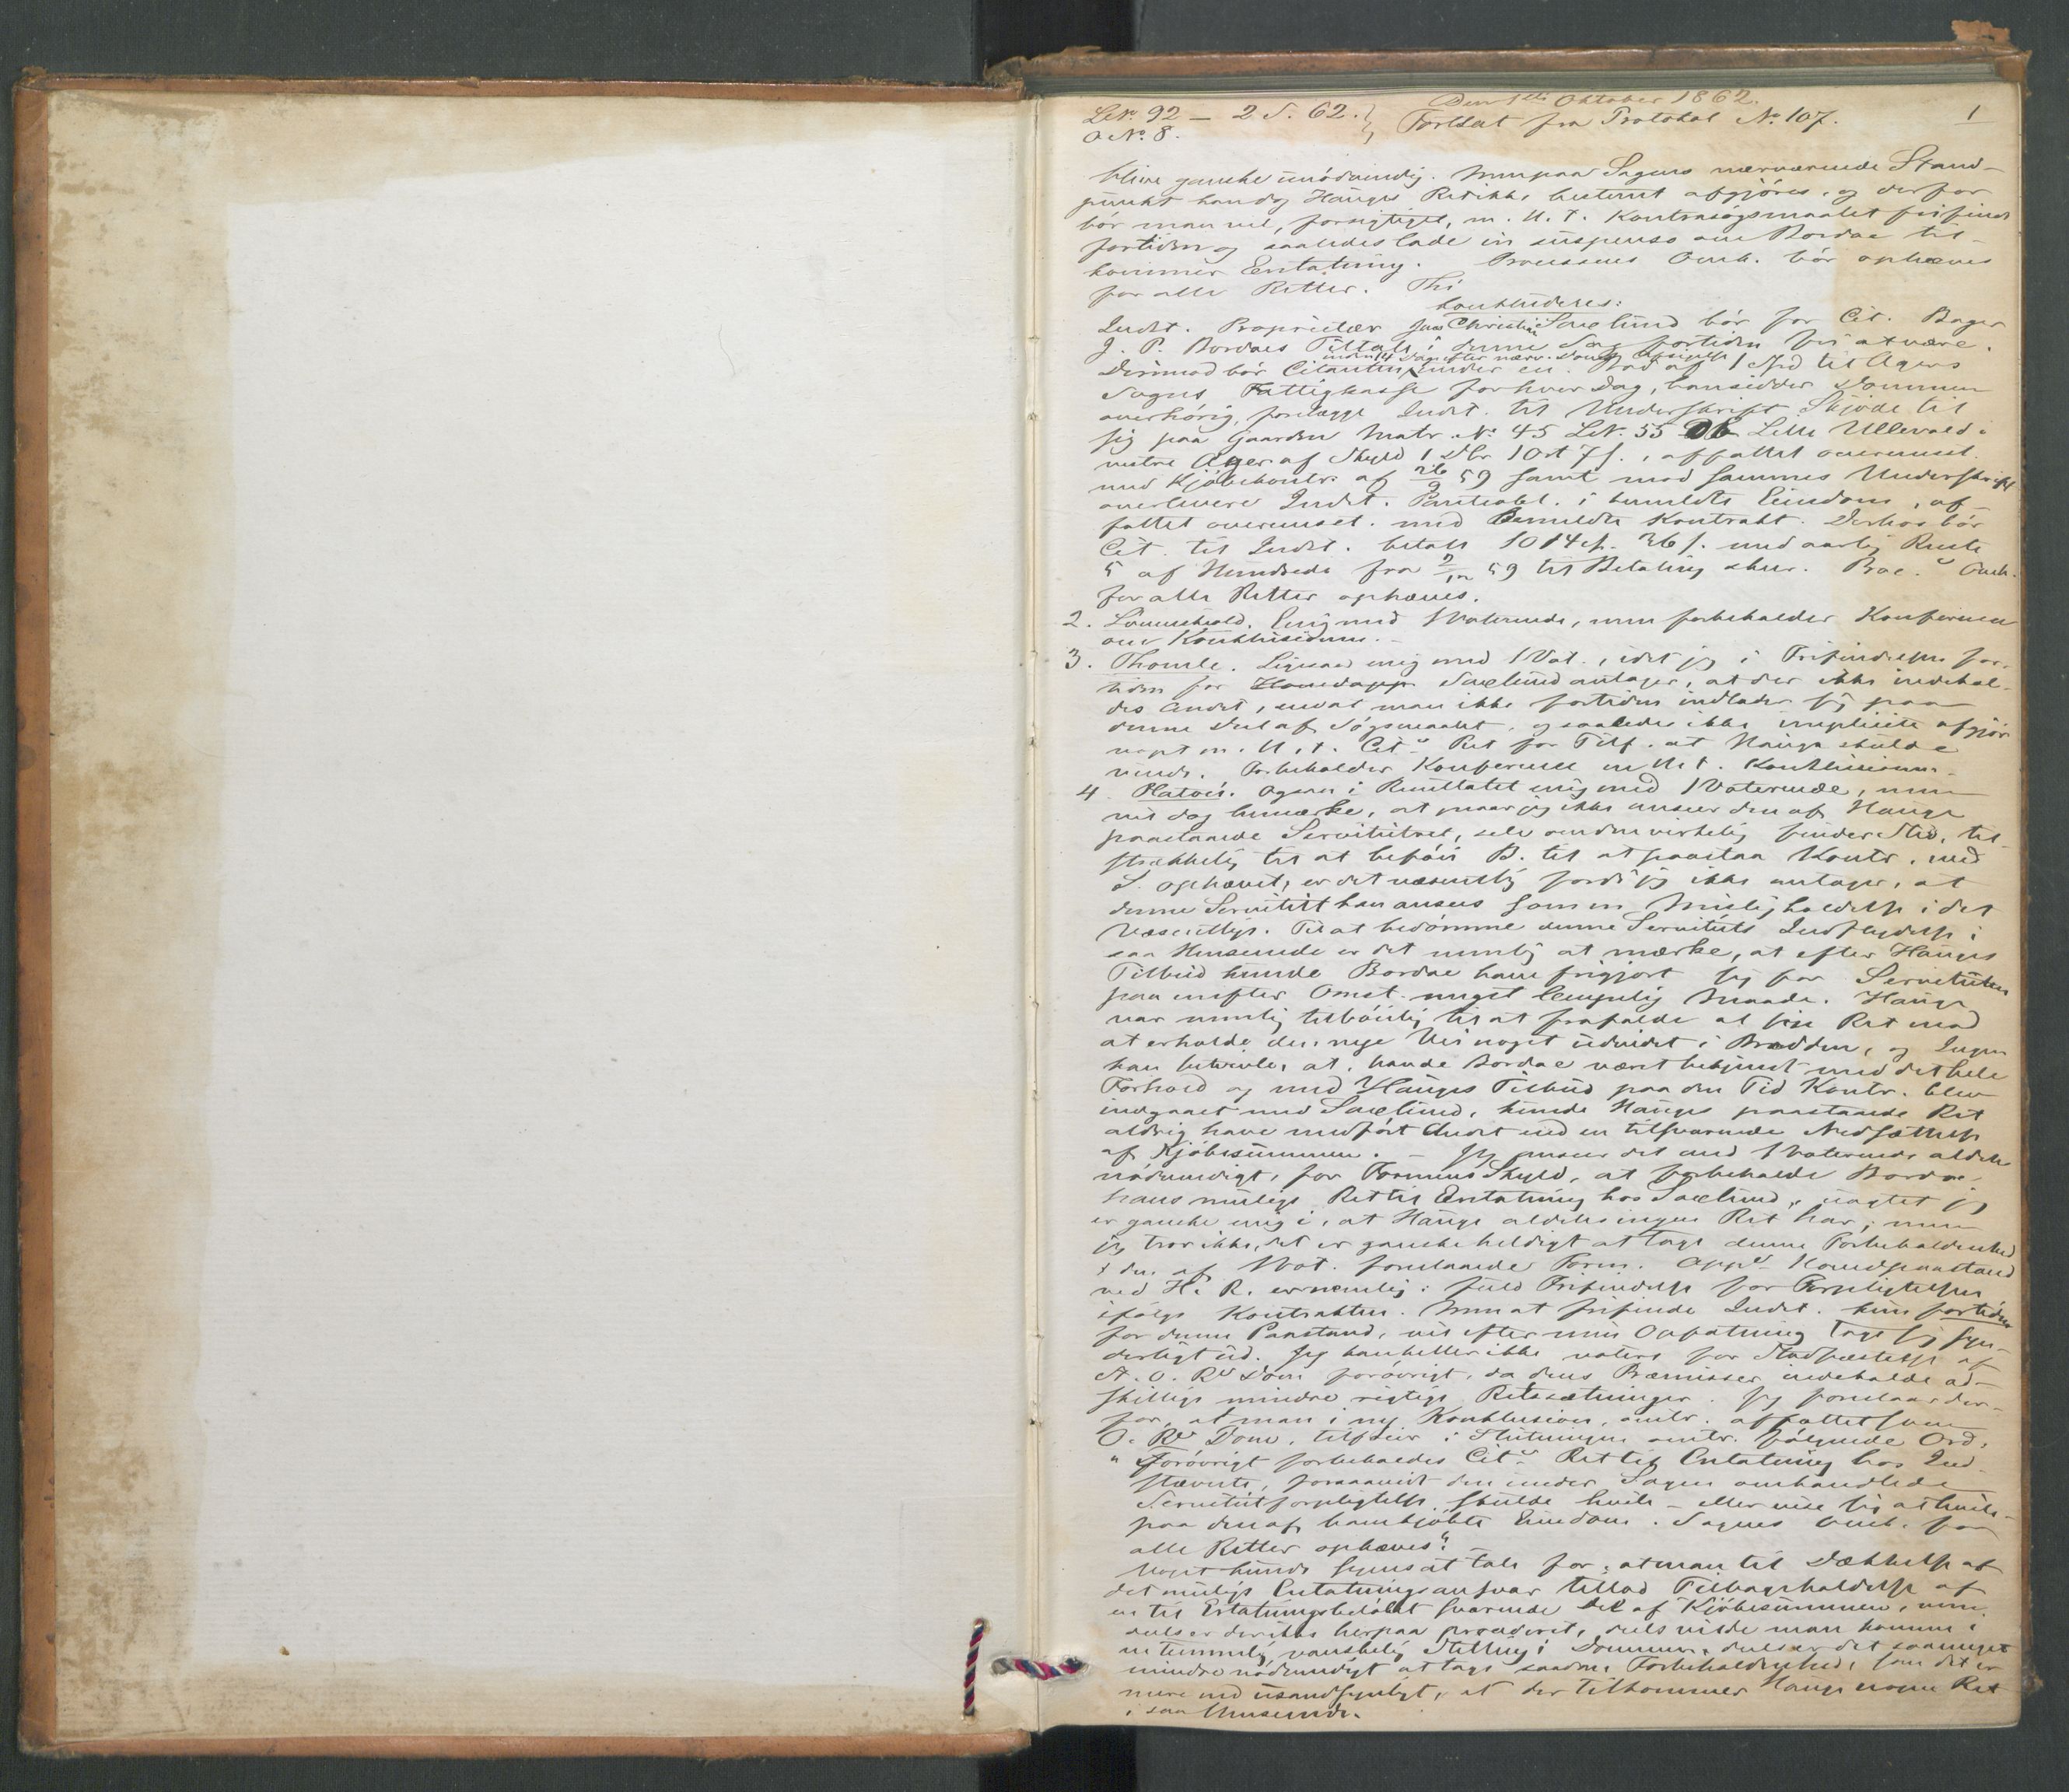 Den 1ste Oktober 1862.
LNo 92 — 2 S. 62. } Fortsat fra Protokol No 107. 1
a No 8.
blive ganske unödvendig. Men paa Sagens nærværende Stand-
punkt kan dog Hauges Ret ikke bestemt afgjöres, og derfor
bör man vel, forsigtigst, m. H. t. Kontrasögsmaalet frifinde
fortiden og saaledes lade in suspenso om Bordoe til-
kommer Erstatning. Processens Omk. bör ophæves
for alle Retter. Thi
konkluderes:
Indst. Proprietær Jens Christian Saxlund bör for Cit. Bager
J. P. Bordoes Tiltale i denne Sag fortiden fri at være.
inden 14 Dage efter nærv. Doms Afsigelse
Derimod bör Citanten under en Bod af 1 Spd til Agers
Sogns Fattigkasse for hver Dag, han sidder Dommen
overhörig, forelægge Indst. til Underskrift Skjöde til
sig paa Gaarden Matr. No 45 LNo 55 b Lille Ullevold i
vestre Ager af Skyld 1 Dlr 1 Ort 7 s., affattet overensst.
med Kjöbekontr. af 26/9 59 samt mod sammes Underskrift
overlevere Indst. Panteobl. i bemeldte Eiendom, af-
fattet overensst. med bemeldte Kontrakt. Derhos bör
Cit. til Indst. betale 1014 Sp. 36 s. med aarlig Rente
5 af Hundrede fra 59 til Betaling sker. Proc. Omk.
for alle Retter ophæves.
2. Lövenskiold. Enig med 1 Voterende, men forbeholder Konference
om Konklusionen. –
3. Thomle. Ligesaa enig med 1 Vot., idet jeg i Frifindelsen for-
tiden for Saxlund antager, at der ikke indehol-
des Andet, end at man ikke fortiden indlader sig paa
denne Del af Sögsmaalet, og saaledes ikke implicite afgjör
noget m. H. t. Cits Ret for Tilf. at Hauge skulde
vinde. Forbeholder Konference m. H. t. Konklusionen.
4. Platou. Ogsaa i Resultatet enig med 1 Voterende, men
vil dog bemærke, at naar jeg ikke anseer den af Hauge
paastaaede Servitutret, selv om den virkelig finder Sted, til-
strækkelig til at beföie B. til at paastaa Kontr. med
S. ophævet, er det væsentlig fordi jeg ikke antager, at
denne Servitut kan ansees som en Misligholdelse i det
Væsentlige. Til at bedömme denne Servituts Indflydelse i
saa Henseende er det nemlig at mærke, at efter Hauges
Tilbud kunde Bordoe have frigjort sig for Servituten
paa en efter Omst. meget lempelig Maade. Hauge
var nemlig tilböielig til at frafalde al sin Ret mod
at erholde den nye Vei noget udvidet i Bredden, og Ingen
kan betvivle, at, havde Bordoe været bekjendt med det hele
Forhold og med Hauges Tilbud paa den Tid Kontr. blev
indgaaet med Saxlund, kunde Hauges paastaaede Ret
aldrig have medfört Andet end en tilsvarende Nedsættelse
af Kjöbesummen. – Jeg anseer det med 1 Voterende aldeles
nödvendigt, for Formens Skyld, at forbeholde Bordoe
hans mulige Ret til Erstatning hos Saxlund, uagtet jeg
er ganske enig i, at Hauge aldeles ingen Ret har; men
jeg tror ikke, det er ganske heldigt at tage denne Forbeholdenhed
i den af 1 Vot. foreslaaede Form. Apps Hovedpaastand
ved H. R. er nemlig: fuld Frifindelse for Forpligtelsen
ifölge Kontrakten. Men at frifinde Indst. kun fortiden
for denne Paastand, vil efter min Opfatning tage sig syn-
derligt ud. Jeg kan heller ikke votere for Stadfæstelse af
St. O. Rs Dom forövrigt, da dens Præmisser indeholde ad-
skillige mindre rigtige Retssætninger. Jeg foreslaar der-
for, at man i ny Konklusion, omtr. affattet som
O. Rs Dom, tilföier i Slutningen omtr. fölgende Ord:
"Forövrigt forbeholdes Cits Ret til Erstatning hos Ind-
stævnte, forsaavidt den under Sagen omhandlede
Servitutforpligtelse skulde hvile – eller vise sig at hvile –
paa den af ham kjöbte Eiendom. Sagens Omk. for
alle Retter ophæves". –
Noget kunde synes at tale for, at man til Dækkelse af
det mulige Erstatningsansvar tillod Tilbageholdelse af
en til Erstatningsbelöbet svarende Del af Kjöbesummen, men
dels er der ikke herpaa procederet, dels vilde man komme i
en temmelig vanskelig Stilling i Dommen, dels er det saameget
mindre nödvendigt at tage saadan Forbeholdenhed, som det er
mere end usandsynligt, at der tilkommer Hauge nogen Ret
i saa Henseende.